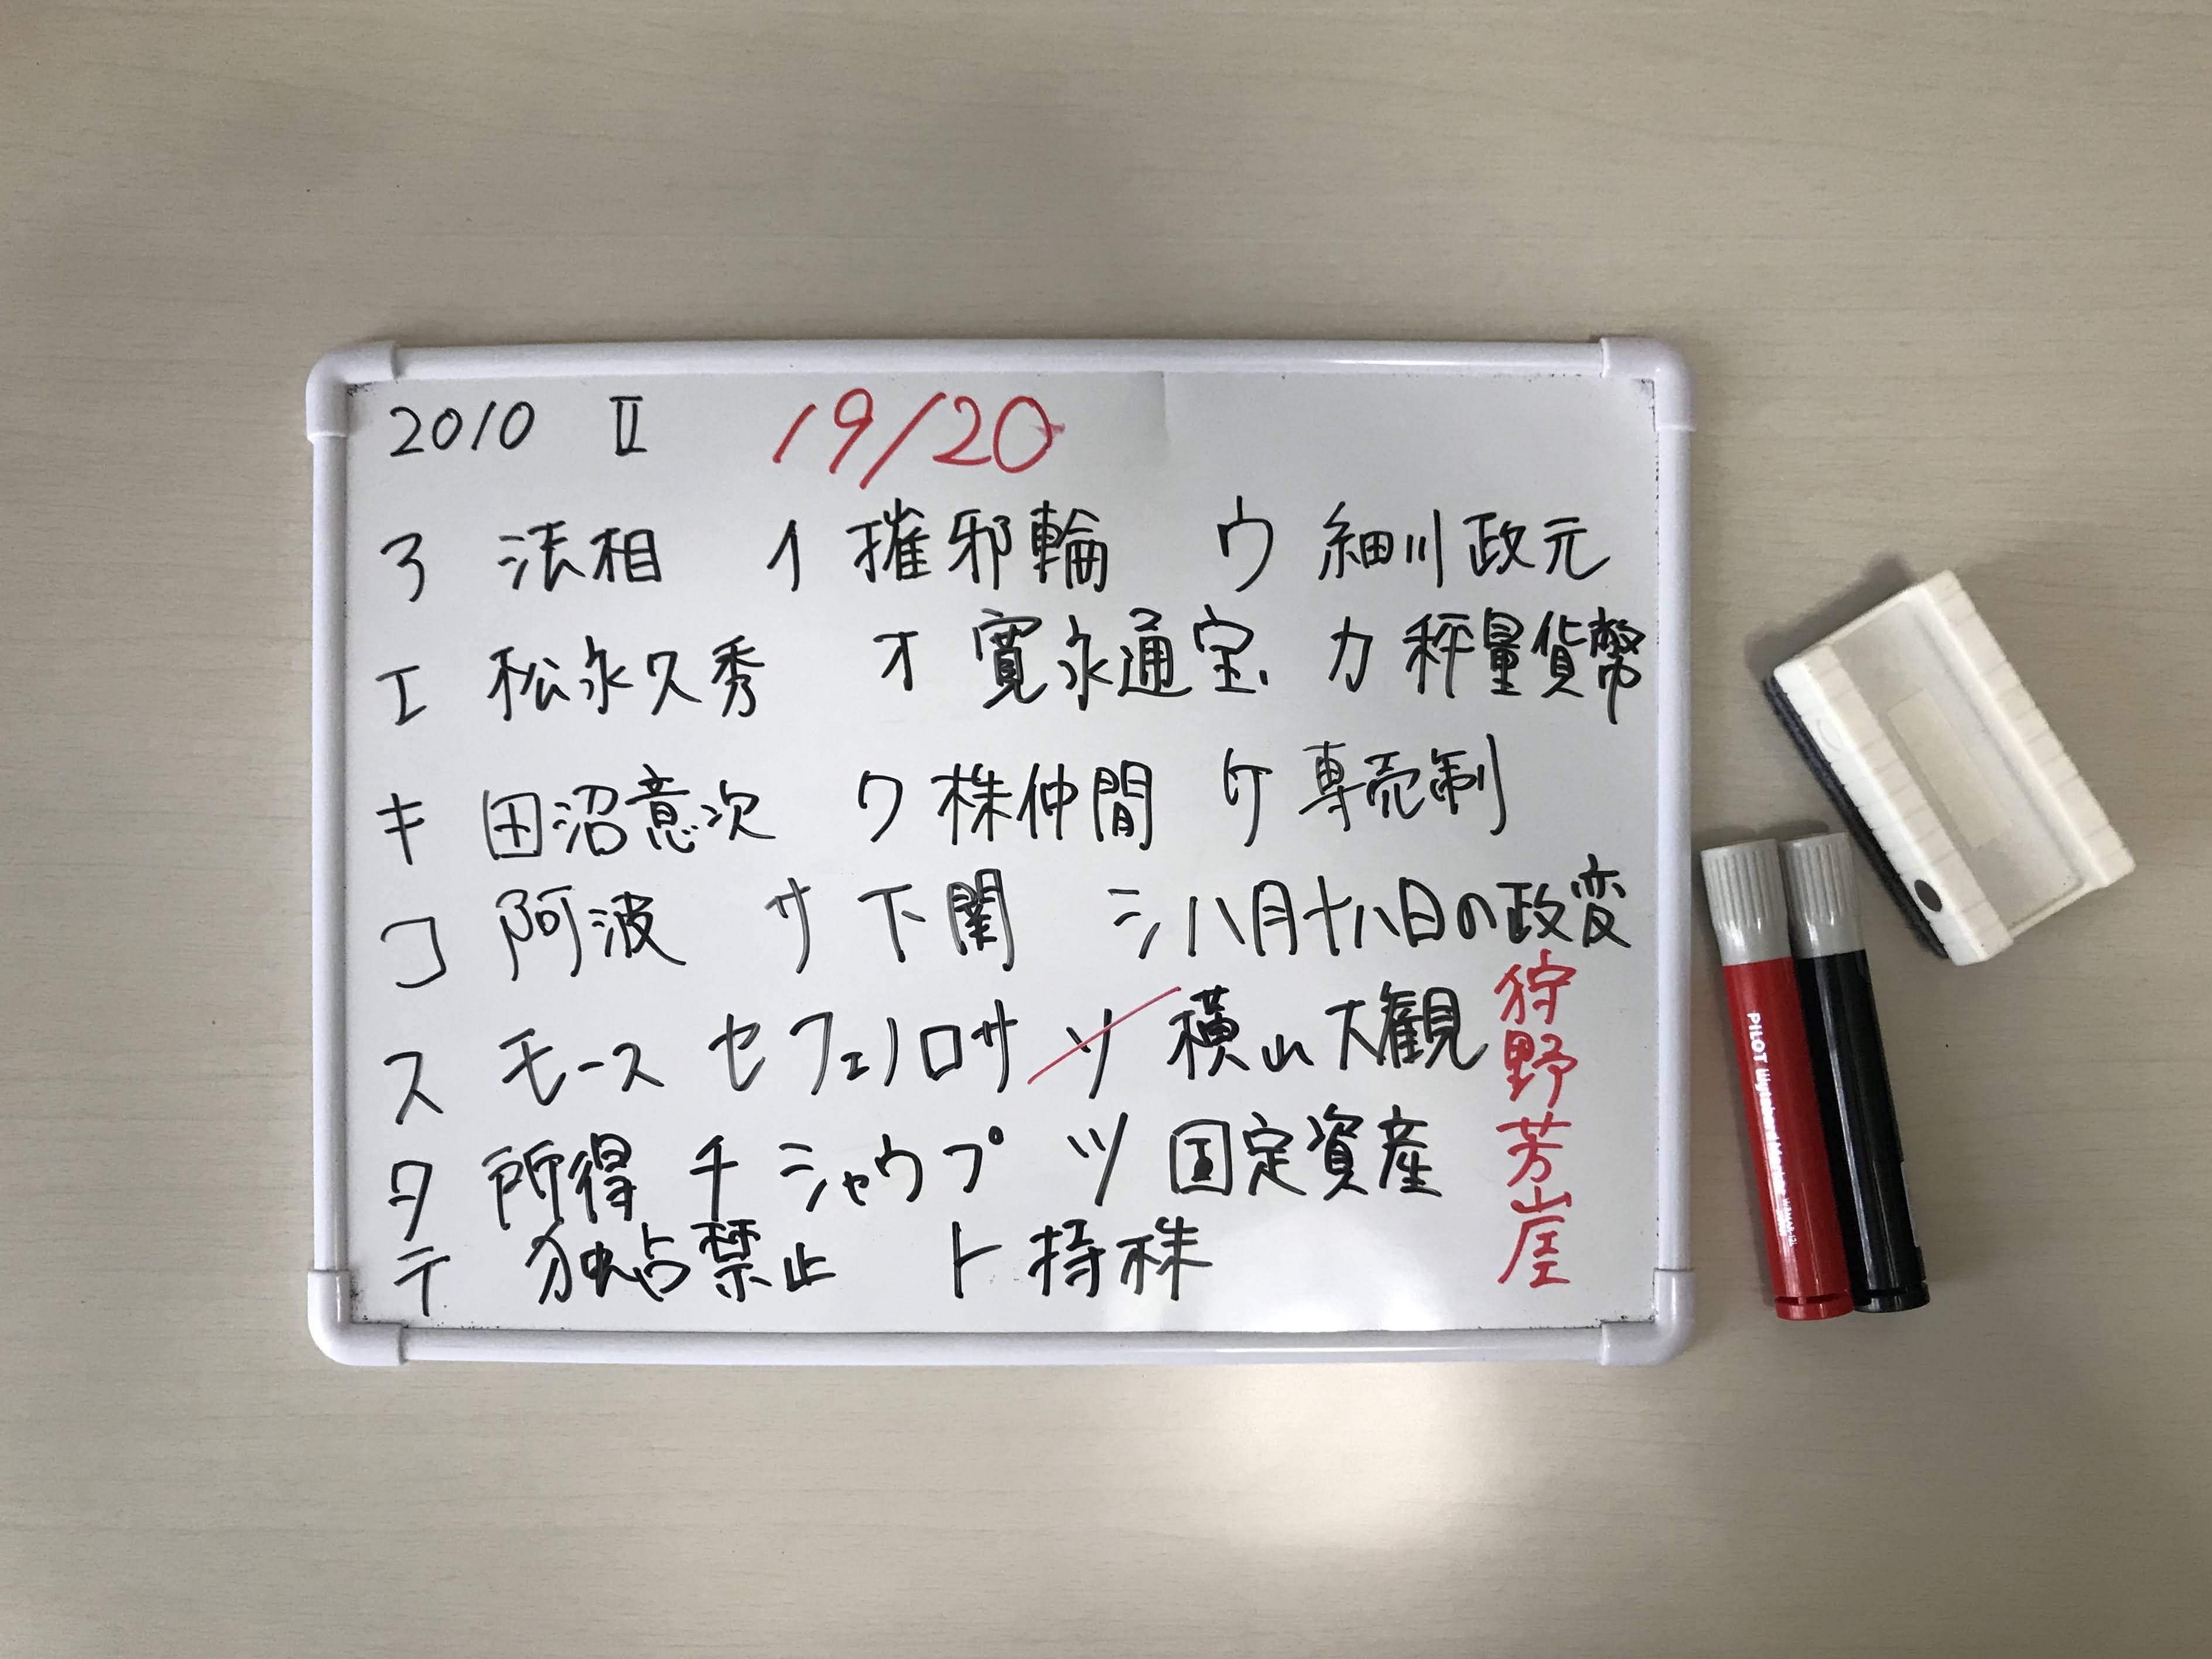 2010 Ⅱ 19/20
ア 法相 イ 摧邪輪 ウ 細川政元
エ 松永久秀 オ 寛永通宝 カ 秤量貨幣
キ 田沼意次 ク 株仲間 ケ 専売制
コ 阿波 サ 下関 シ 八月十八日の政変
ス モース セ フェノロサ ソ 横山大観
狩野芳崖
タ 所得 チ シャウプ ツ 固定資産
テ 独占禁止 ト 持株
PILOT